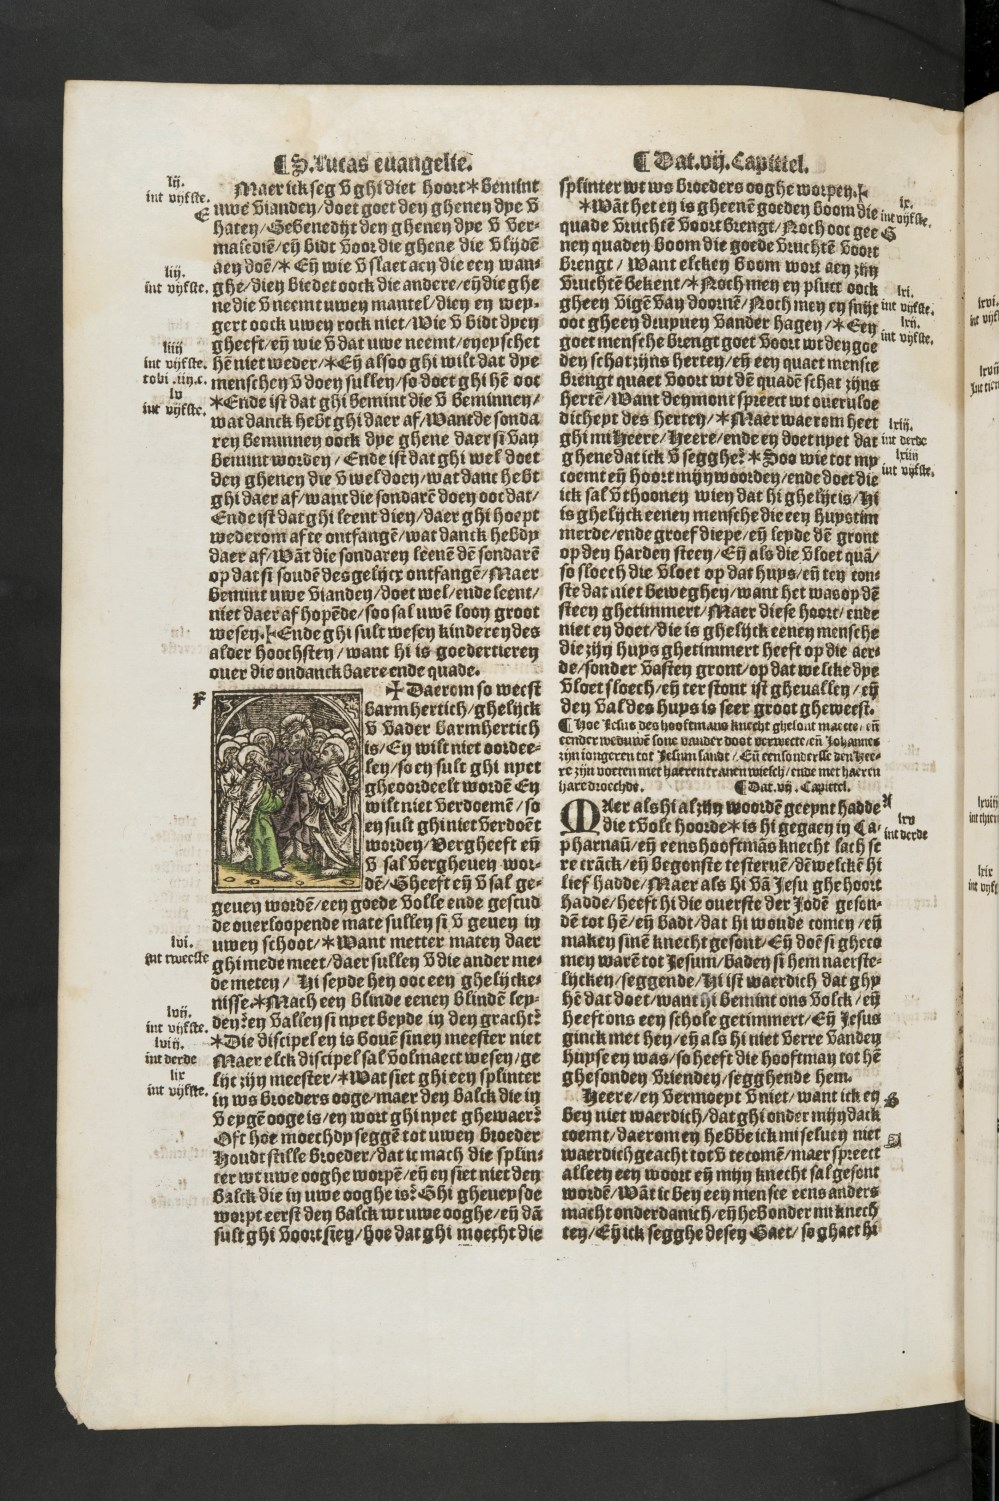 ¶ S. Lucas euangelie.
lij.
int vijfste.
E
liij.
int vijfste.
liiij
int vijfste.
tobi .iiij.c.
lv
int vijfste.
Maer ick seg v ghi diet hoort * Bemint
uwe vianden/doet goet den ghenen dye v
haten/Gebenedijt den ghenen dye v ver-
maledien/eñ bidt voor die ghene die v lijdẽ
aen doẽ/* Eñ wie v slaet aen die een wan-
ghe/dien biedet oock die andere/eñ die ghe
ne die v neemt uwen mantel/dien en wey-
gert oock uwen rock niet/Wie v bidt dyen
gheeft/eñ wie v dat uwe neemt/en eyschet
hẽ niet weder/* Eñ alsoo ghi wilt dat dye
menschen v doen sullen/so doet ghi hẽ oot
*Ende ist dat ghi bemint die v beminnen/
wat danck hebt ghi daer af/Want de sonda
ren beminnen oock dye ghene daer si van
bemint worden/Ende ist dat ghi wel doet
den ghenen die v wel doen/wat danc hebt
ghi daer af/want die sondarẽ doen oot dat/
Ende ist dat ghi leent dien/daer ghi hoept
wederom af te ontfangẽ/wat danck hebdy
daer af/Wãt die sondaren leenẽ dẽ sondarẽ
op dat si soudẽ des gelijcx ontfangẽ/Maer
bemint uwe vianden/doet wel/ende leent/
niet daer af hopẽde/soo sal uwẽ loon groot
wesen. Ende ghi sult wesen kinderen des
alder hoochsten/want hi is goedertieren
ouer die ondanckbaere ende quade.
F
✠ Daerom so weest
barmhertich/ghelijck
v vader barmhertich
is/En wilt niet oordee-
len/so en sult ghi nyet
gheoordeelt wordẽ En
wilt niet verdoemẽ/so
en sult ghi niet verdoẽt
worden/Vergheeft eñ
v sal vergheuen wor-
dẽ/Gheeft eñ v sal ge-
geuen wordẽ/een goede volle ende gestud
de ouerloopende mate sullen si v geuen in
uwen schoot/* Want metter maten daer
ghi mede meet/daer sullen v die ander me-
de meten/ Hi seyde hen oot een ghelijcke-
nisse.*Mach een blinde eenen blindẽ ley-
den? en vallen si nyet beyde in den gracht?
*Die discipel en is bouẽ sinen meester niet
Maer elck discipel sal volmaect wesen/ge
lijc zijn meester/*Wat siet ghi een splinter
in ws broeders ooge/maer den balck die in
v eygẽ ooge is/en wort ghi nyet ghewaer?
Oft hoe moechdy seggẽ tot uwen broeder
Houdt stille broeder/dat ic mach die splin-
ter wt uwe ooghe worpẽ/eñ en siet niet den
balck die in uwe ooghe is? Ghi gheueynsde
worpt eerst den balck wt uwe ooghe/eñ dã
sult ghi voort sien/hoe dat ghi moecht die
lvi.
int tweeste
lvij.
int vijfste.
lviij.
int derde
lix
int vijfste.
¶ Dat.vij. Capittel.
splinter wt ws broeders ooghe worpen.
*Wãt het en is gheenẽ goeden boom die
quade vruchtẽ voort brengt/Noch oot gee
nen quaden boom die goede vruchtẽ voort
brengt/ Want elcken boom wort aen zijn
vruchtẽ bekent/*Noch men en pluct oock
gheen vigẽ van doornẽ/Noch men en snijt
oot gheen druyuen vander hagen/* Een
goet mensche brengt goet voort wt den goe
den schat zijns herten/eñ een quaet mensce
brengt quaet voort wt dẽ quadẽ schat zijns
hertẽ/Want den mont spreect wt oueruloe
dichept des herten/* Maer waerom heet
ghi mi Heere/Heere/ende en doet nyet dat
ghene dat ick v segghe? * Soo wie tot my
coemt eñ hoort mijn woorden/ende doet die
ick sal v thoonen wien dat hi ghelijc is/Hi
is ghelijck eenen mensche die een huys tim
merde/ende groef diepe/eñ leyde dẽ gront
op den harden steen/Eñ als die vloet quã/
so sloech die vloet op dat huys/eñ ten con-
ste dat niet beweghen/want het was op dẽ
steen ghetimmert/Maer diese hoort/ende
niet en doet/die is ghelijck eenen mensche
die zijn huys ghetimmert heeft op die aer-
de/sonder vasten gront/op dat welcke dye
vloet sloech/eñ ter stont ist gheuallen/eñ
den val des huys is seer groot gheweest.
¶ Hoe Jesus des hooftmans knecht ghesont maecte/eñ
eender weduwẽ sone vander doot verwecte/eñ Johannes
zijn iongeren tot Jesum sandt/Eñ een sonderſſe den Hee-
re zijn voeten met haeren tranen wiesch/ende met haeren
hare droechde. ¶ Dat.vij. Capittel.
MAer als hi al zijn woordẽ geeynt hadde
die t volc hoorde* is hi gegaen in Ca-
pharnaũ/eñ eens hooftmãs knecht lach se
re crãck/eñ begonste te steruẽ/dẽ welckẽ hi
lief hadde/Maer als hi vã Jesu ghehoort
hadde/heeft hi die ouerste der Jodẽ geson-
dẽ tot hẽ/eñ badt/dat hi woude comen/eñ
maken sinẽ knecht gesont/Eñ doẽ si gheco
men warẽ tot Jesum/baden si hem naerste-
lijcken/seggende/Hi ist waerdich dat ghy
hẽ dat doet/want hi bemint ons volck/eñ
heeft ons een schole getimmert/Eñ Jesus
ginck met hen/eñ als hi niet verre vanden
huyse en was/so heeft die hooftman tot hẽ
ghesonden vrienden/segghende hem.
Heere/en vermoeyt v niet/want ick en
ben niet waerdich/dat ghi onder mijn dack
coemt/daerom en hebbe ick mi seluen niet
waerdich geacht tot v te comẽ/maer spreect
alleen een woort eñ mijn knecht sal gesont
wordẽ/Wãt ic ben een mensce eens anders
macht onderdanich/eñ heb onder mi knech
ten/Eñ ick segghe desen Gaet/so ghaet hi
lx.
int vijfste.
G
lxi.
int vijfste.
lxij.
int vijfste.
lxiij.
int derde
lxiiij
int vijfste.
A
lxv
int derde
B